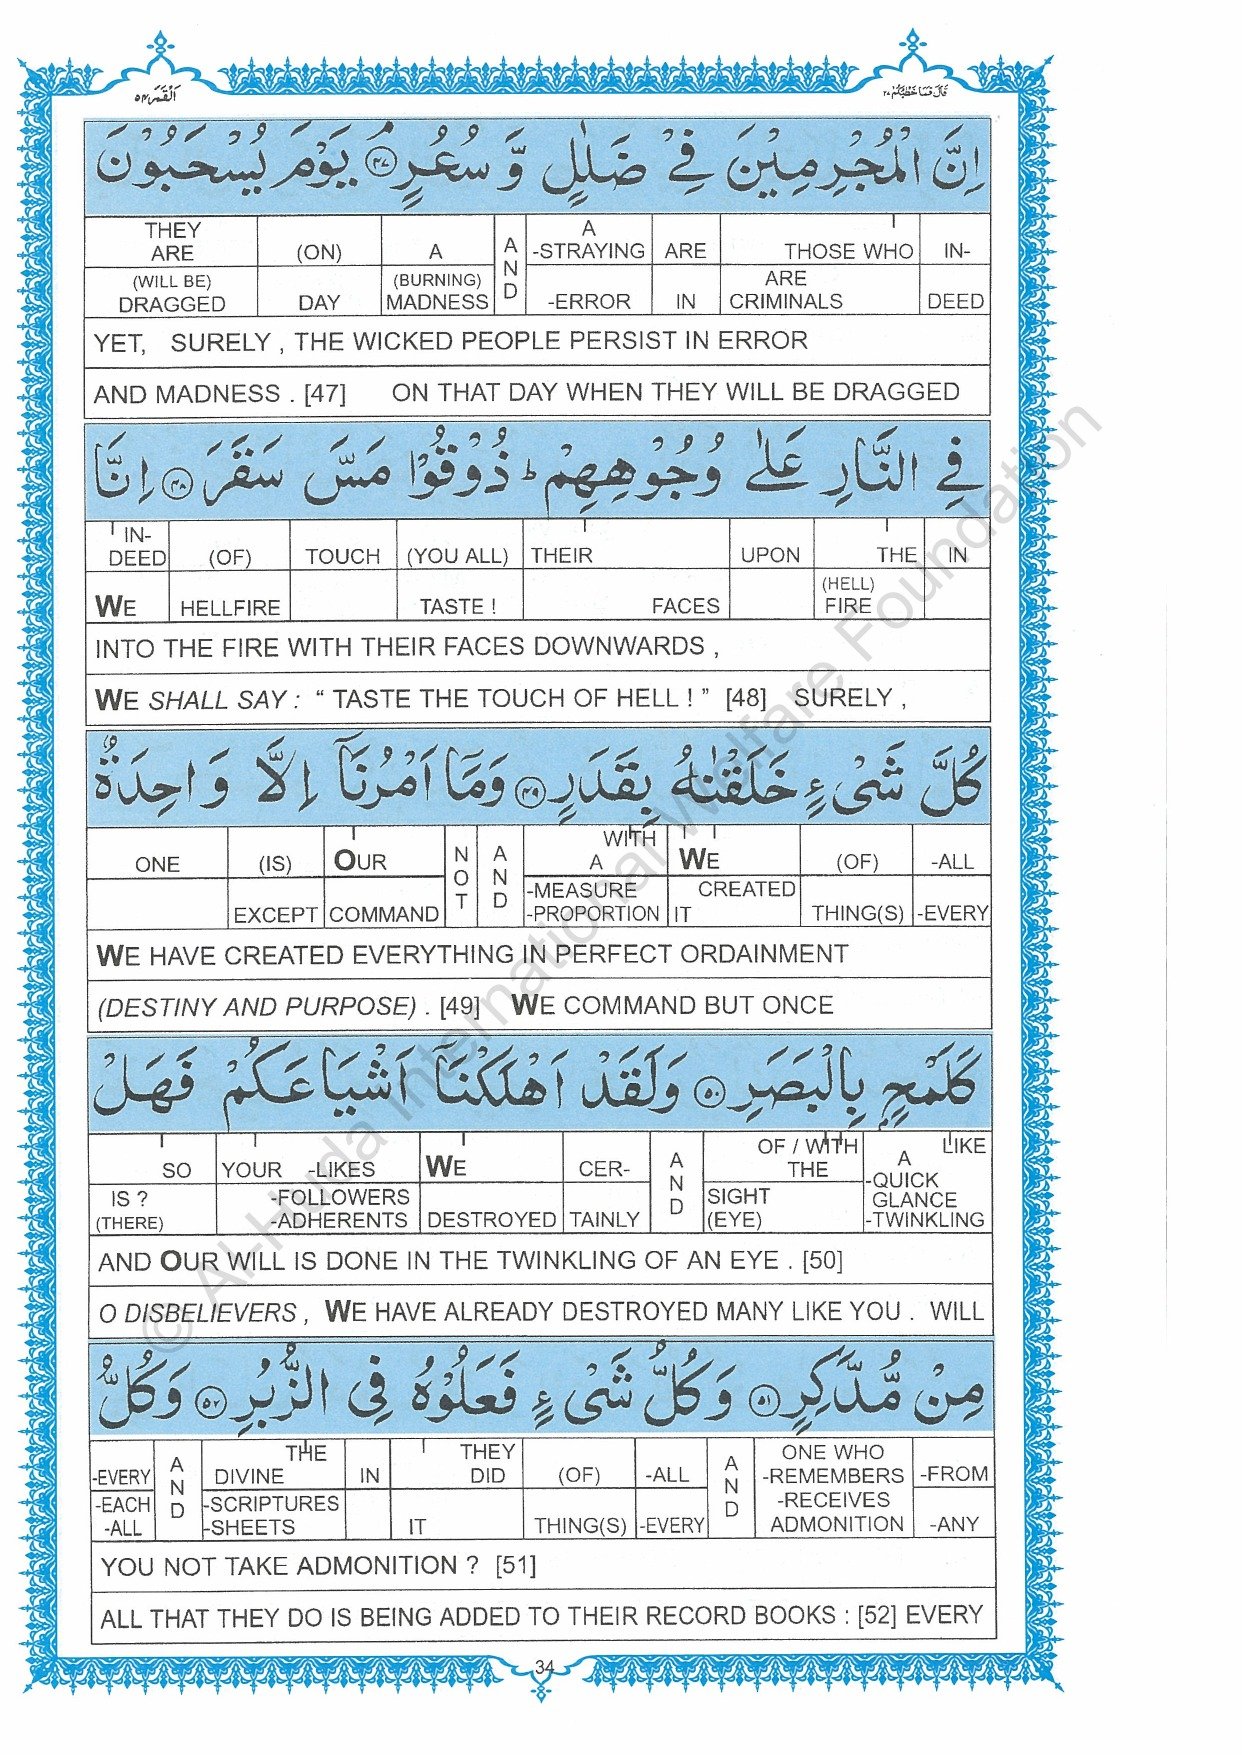 اَلْقَمَر ٥٤
قَالَ فَمَا خَطْبُكُمْ ٢٧
اِنَّ الْمُجْرِمِيْنَ فِيْ ضَلٰلٍ وَّ سُعُرٍ ﴿٤٧﴾ يَوْمَ يُسْحَبُوْنَ
THEY ARE (ON) A AND A -STRAYING ARE THOSE WHO IN-
(WILL BE) DRAGGED DAY (BURNING) MADNESS -ERROR IN ARE CRIMINALS DEED
YET, SURELY , THE WICKED PEOPLE PERSIST IN ERROR
AND MADNESS . [47] ON THAT DAY WHEN THEY WILL BE DRAGGED
فِي النَّارِ عَلٰى وُجُوْهِهِمْ ؕ ذُوْقُوْا مَسَّ سَقَرَ ﴿٤٨﴾ اِنَّا
IN-DEED (OF) TOUCH (YOU ALL) THEIR UPON THE IN
WE HELLFIRE TASTE ! FACES (HELL) FIRE
INTO THE FIRE WITH THEIR FACES DOWNWARDS ,
WE SHALL SAY : “ TASTE THE TOUCH OF HELL ! ” [48] SURELY ,
كُلَّ شَيْءٍ خَلَقْنٰهُ بِقَدَرٍ ﴿٤٩﴾ وَمَاۤ اَمْرُنَاۤ اِلَّا وَاحِدَةٌ
ONE (IS) OUR NOT AND WITH A WE (OF) -ALL
EXCEPT COMMAND -MEASURE -PROPORTION CREATED IT THING(S) -EVERY
WE HAVE CREATED EVERYTHING IN PERFECT ORDAINMENT
(DESTINY AND PURPOSE) . [49] WE COMMAND BUT ONCE
كَلَمْحٍۭ بِالْبَصَرِ ﴿٥٠﴾ وَلَقَدْ اَهْلَكْنَاۤ اَشْيَاعَكُمْ فَهَلْ
SO YOUR -LIKES WE CER- AND OF / WITH THE LIKE A
IS ? (THERE) -FOLLOWERS -ADHERENTS DESTROYED TAINLY SIGHT (EYE) -QUICK GLANCE -TWINKLING
AND OUR WILL IS DONE IN THE TWINKLING OF AN EYE . [50]
O DISBELIEVERS , WE HAVE ALREADY DESTROYED MANY LIKE YOU . WILL
مِنْ مُّدَّكِرٍ ﴿٥١﴾ وَكُلُّ شَيْءٍ فَعَلُوْهُ فِي الزُّبُرِ ﴿٥٢﴾ وَكُلُّ
-EVERY AND THE DIVINE IN THEY DID (OF) -ALL AND ONE WHO -REMEMBERS -FROM
-EACH -ALL -SCRIPTURES -SHEETS IT THING(S) -EVERY -RECEIVES ADMONITION -ANY
YOU NOT TAKE ADMONITION ? [51]
ALL THAT THEY DO IS BEING ADDED TO THEIR RECORD BOOKS : [52] EVERY
34
© Al-Huda International Welfare Foundation